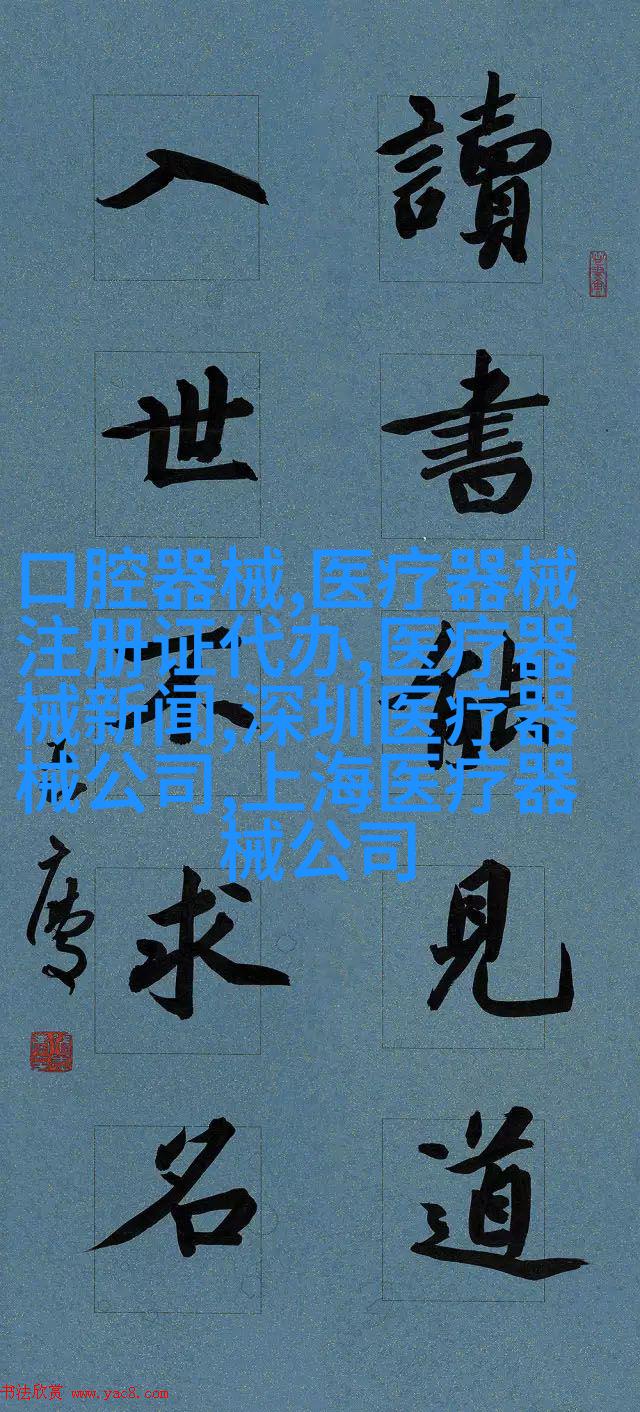 讀書能見道
入世不求名
口腔器械,医疗器械
注册证代办,医疗器
械新闻,深圳医疗器
械公司,上海医疗器
械公司
书法欣赏 www.yac8.com